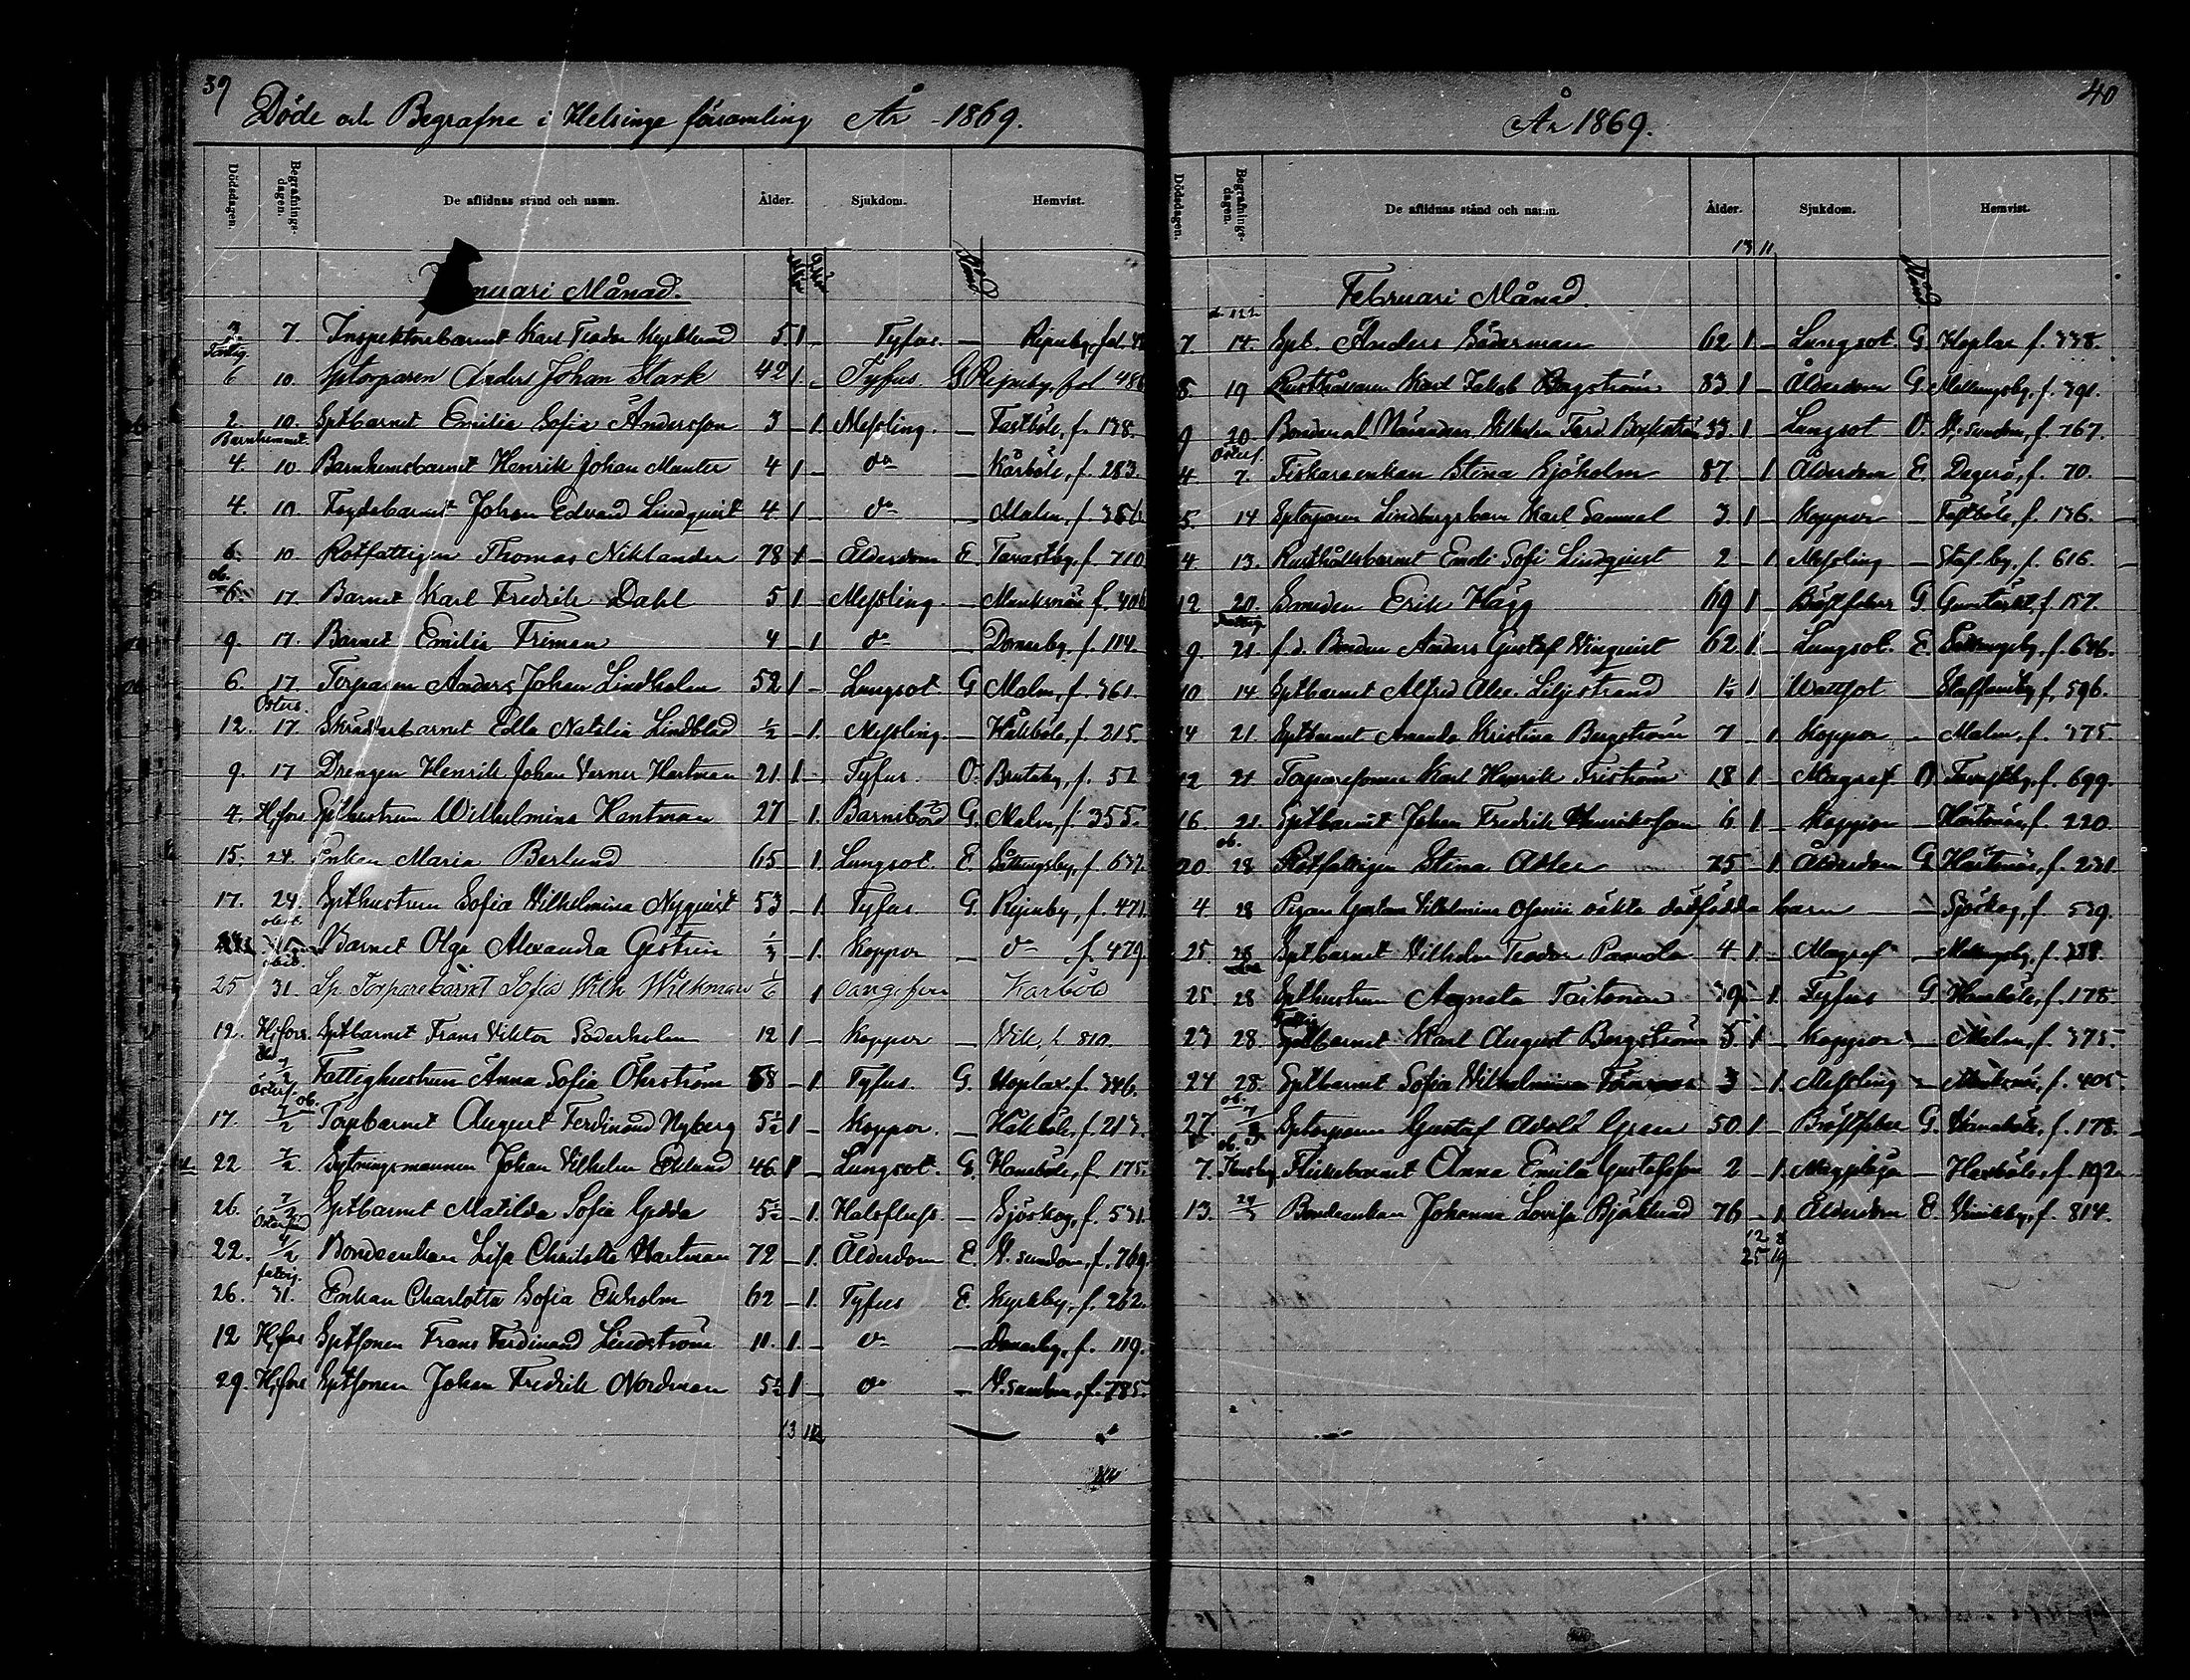 39
Döde och Begrafne i Helsinge församling År 1869.
Dödsdagen. Begrafnings-dagen. De aflidnas stånd och namn. Ålder. Sjukdom. Hemvist.
nuari Månad.
3 7. Inspektorsbarnet Karl Teodor 5 1 – Tyfus. –
6 10. Sptorparen Anders Johan Stark 42 1 – Tyfus G
2. 10. Sptbarnet Emilia Sofia Andersson 3 – 1. Messling. – Fastböle, f. 138.
Barnhemmet.
4. 10 Barnhemsbarnet Henrik Johan Manter 4 1 – do – Kårböle, f. 283.
4. 10. Johan Edvard Lindqvist 4 1 – do – Malm, f.
6. 10 Rotfattigen Thomas Niklander 78 1 – Ålderdom E. Tavastby, f. 710
6. 17. Barnet Karl Fredrik Dahl 5 1 Messling. –
9. 17. Barnet Emilia Friman 4 – 1 do – Domarby, f. 114.
6. 17. Torparen Anders Johan Lindholm 52 1 – Lungsot G Malm, f. 361.
12. 17. Skräddarbarnet Edla Natalia Lindblad ½ – 1. Messling – Håkböle, f. 215.
9. 17 Drengen Henrik Johan Verner Hartman 21 1 – Tyfus. O. Brutuby, f. 52
4. H;fors Spthustrun Wilhelmina Hantman 27 – 1. Barnsbörd G. Malm, f. 355.
15. 24. Enkan Maria Berlund 65 – 1. Lungsot. E. Båttingsby, f. 637.
17. 24. Spthustrun Sofia Vilhelmina Nyqvist 53 – 1. Tyfus. G. f. 471.
Barnet Olga Alexandra Gestrin ⅓ – 1. Koppor – do f. 479
25 31. Sp. Torparebarnet Sofia Wilh Wikman 1/6 1 Kårböle
12. H;fors. Sptbarnet Frans Viktor Söderholm 12 1 – Koppor – Vik, f. 810.
7/2 Fattighustrun Anna Sofia Öhrström 58 – 1. Tyfus. G. Hoplax. f. 346.
17. 7/2 Torpbarnet August Ferdinand Nyberg 5½ 1 – Koppor. – Håkböle, f. 213.
22 7/2. Sytningsmannen Johan Vilhelm Eklund 46 1 – Lungsot. G. Hanaböle, f. 175.
26. 7/2 Sptbarnet Matilda Sofia Gedda 5½ – 1. Halsfluss. – Sjöskog, f. 531.
22. 7/2 Bondeenkan Lisa Christina Hartman 72 – 1. Ålderdom E. V. sundom, f. 769.
26. 31. Enkan Charlotta Sofia Ekholm 62 – 1. Tyfus E. Kyrkby, f. 262.
12 H;fors Sptsonen Frans Ferdinand Lindström 11. 1. – do – Domarby, f. 119.
29. H;fors Sptsonen Johan Fredrik Nordman 5½ 1 – do – V. sundom, f. 785.
13 12
40
År 1869.
Dödsdagen. Begrafnings-dagen. De aflidnas stånd och namn. Ålder. Sjukdom. Hemvist.
13 11
Februari Månad.
7. 14. Spt. Anders Söderman 62 1. – Lungsot. G. Hoplax f. 338.
8. 19 Rusthållaren Karl Jakob Bergström 83. 1 – Ålderdom G. Mellungsby, f. 391.
9 20. Vilhelm Ferd. 33. 1 – Lungsot O. V. sundom, f. 767.
4 7. Fiskareenkan Stina Sjöholm 87. – 1 Ålderdom E. Degerö, f. 70.
5. 14 Sptorparen Lindbergs barn Karl Samuel 3. 1 – Koppor – Fastböle, f. 136.
4 13. Rusthållsbarnet Emeli Sofi Lindqvist 2 – 1 Messling – Staf. by, f. 616.
12 20. Smeden Erik Hägg 69 1 – Bröstfeber G. f. 157.
9. 21. f. d. Bonden Anders Gustaf Winqvist 62. 1. – Lungsot. E. Båttingsby, f. 646.
10 14 Sptbarnet Alfred Alex. Liljestrand 1 Wattsot – Staffansby f. 596.
14 21. Sptbarnet Amanda Kristina Bergström 7 – 1. Koppor – Malm, f. 375
12 21. Torparesonen Karl Henrik Friström 18 1. – Magref O. Tavastby, f. 699.
16. 21. Sptbarnet Johan Fredrik Henriksson 6 1. – Koppor – f. 220.
20. 28. Rotfattigen Stina Adler 75 – 1. Ålderdom G f. 231.
4. 28 Pigan Gustava Vilhelmina oäkta dödfödda barn – – Sjöskog, f. 539.
25. 28 Sptbarnet Vilhelm Teodor Paavola 4 1. – Magref – Mellungsby, f. 388.
25. 28 Spthustrun Agneta Taitonen 39. – 1. Tyfus G. Hanaböle, f. 178.
23 28. Sptbarnet Karl August Bergström 5. 1 – Koppor – Malm, f. 375.
24 28. Sptbarnet Sofia Vilhelmina 3 – 1. Messling – f. 405.
27. Sptorparen Gustaf Adolf Gran 50. 1. – Bröstfeber G. Hanaböle, f. 178.
7. Flickebarnet Anna Emilia Gustafsson 2 – 1. – Haxböle, f. 192
13. Bondeenkan Johanna Lovisa Björklund 76 – 1. Ålderdom E. Vinikby, f. 814.
12 8
25 19